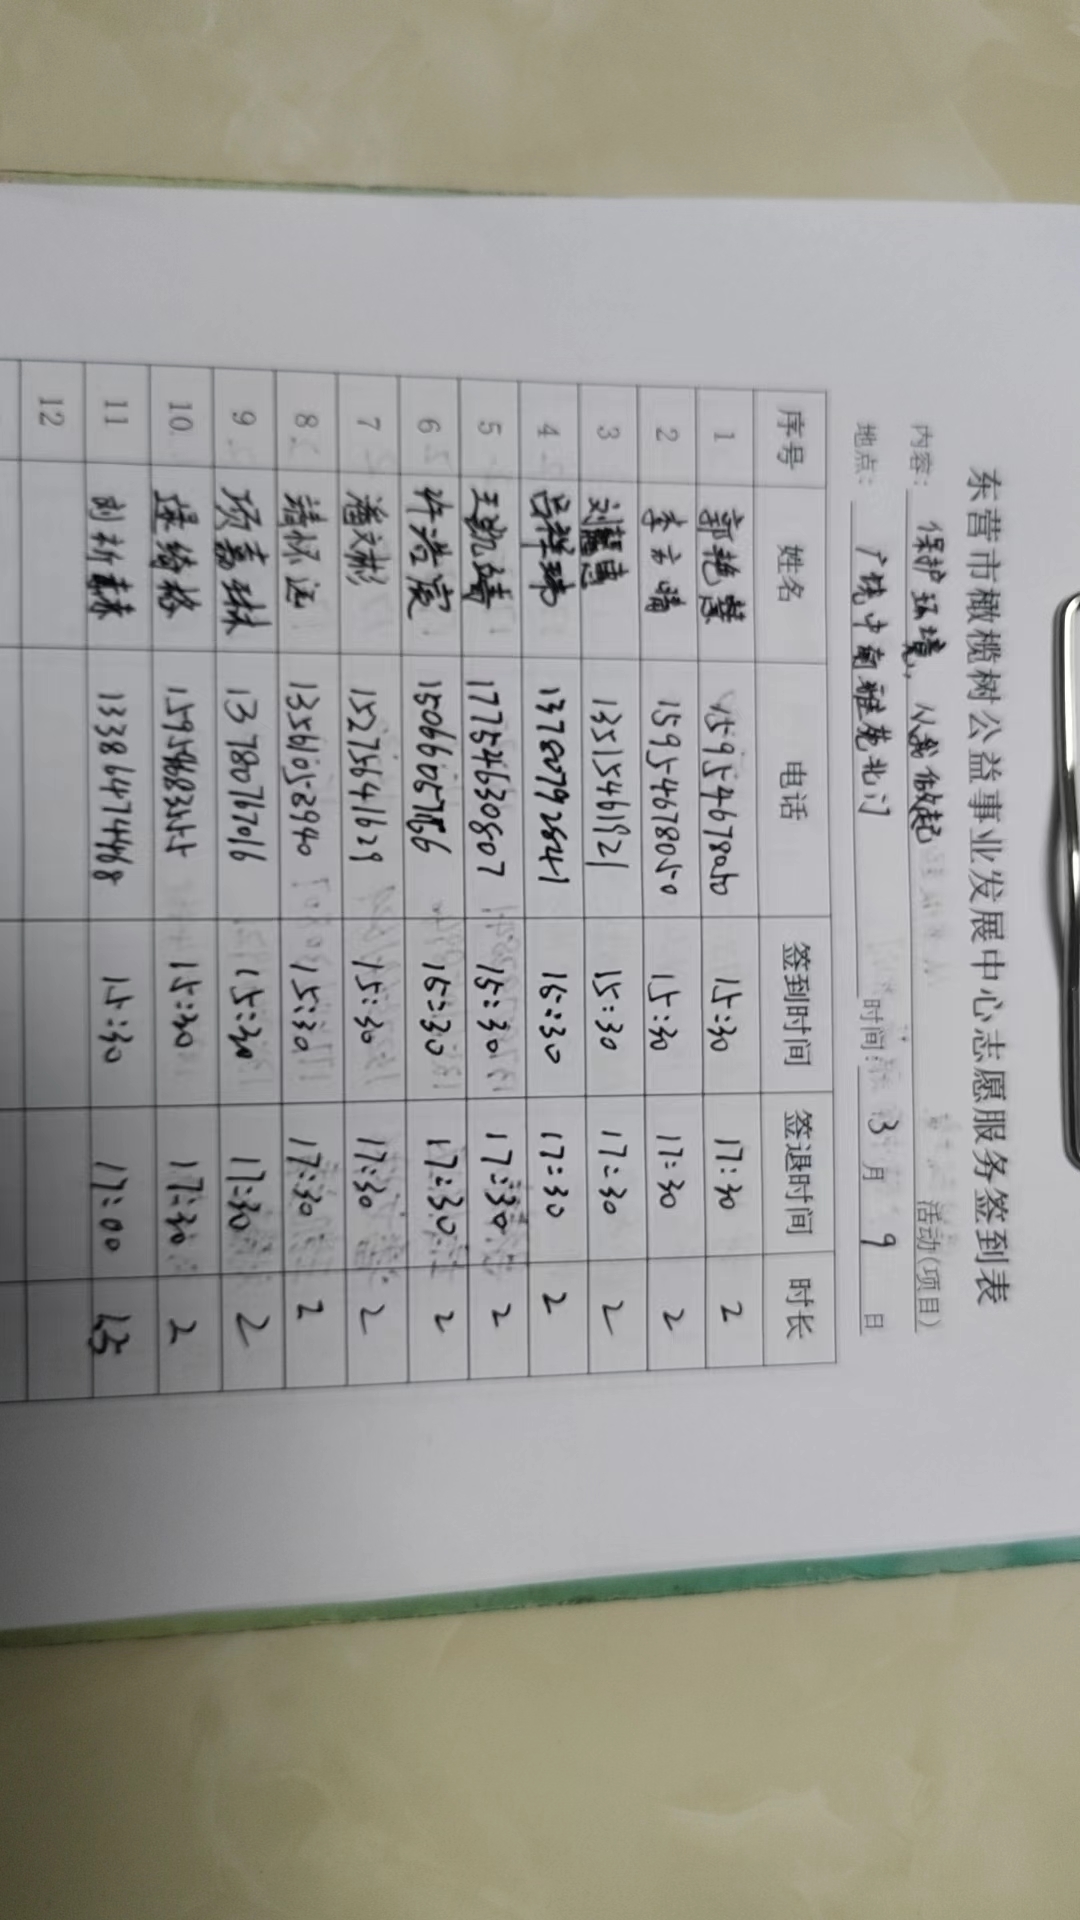 东营市橄榄树公益事业发展中心志愿服务签到表
内容：保护环境，从我做起 活动(项目)
地点：广饶中南雅苑北门 时间：3月9日
序号 姓名 电话 签到时间 签退时间 时长
1 郭艳慧 15954678050 15:30 17:30 2
2 李方晴 15954678050 15:30 17:30 2
3 刘慧 13515461921 15:30 17:30 2
4 吕祥玮 13780792841 15:30 17:30 2
5 王凯 17754630807 15:30 17:30 2
6 许浩宸 15066057156 15:30 17:30 2
7 潘文彬 15275641629 15:30 17:30 2
8 怀远 13561052940 15:30 17:30 2
9 项嘉琳 13780767016 15:30 17:30 2
10 15:30 17:30 2
11 刘新 13386474468 15:30 17:00 1.5
12